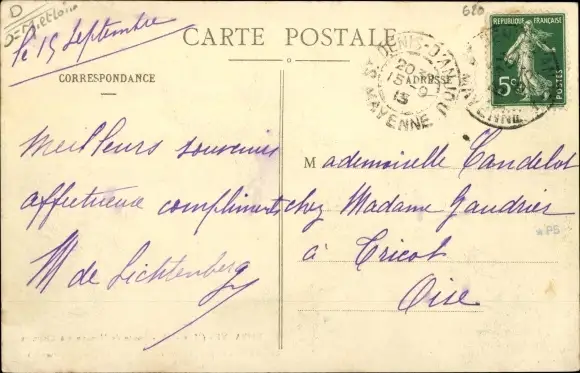 D
le 15 Septembre
CARTE POSTALE
620
REPUBLIQUE FRANÇAISE
5c
POSTES
ST DENIS-D'ANJOU
20
15-9
13
MAYENNE
CORRESPONDANCE
ADRESSE
Meilleurs souvenirs
affectueux compliments
M de Lichtenberg
Mademoiselle Candelot
chez Madame Gaudrier
à Tricot
Oise